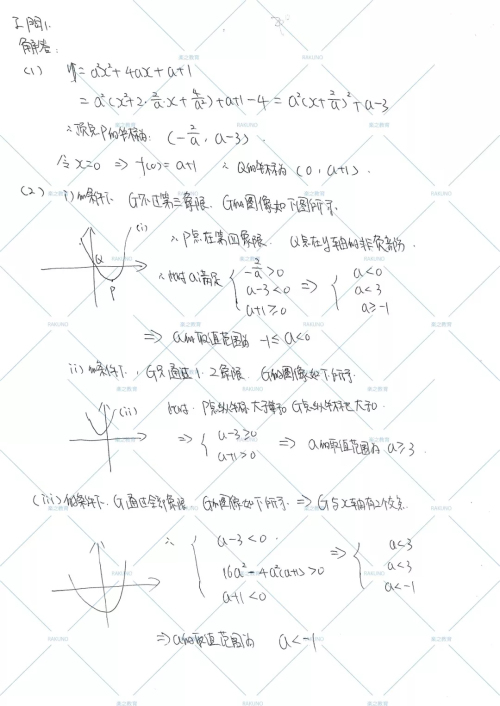 解答:
(1) y = a²x² + 4ax + a+1
= a²(x²+2·2/a·x+4/a²)+a+1-4 = a²(x+2/a)²+a-3
∴顶点P的坐标为: (-2/a, a-3).
令x=0 ⇒ f(0)=a+1 ∴ Q的坐标为 (0, a+1).
(2) i) 的条件下, G不过第三象限. G的图像如下图所示.
(i)
Q
P
∴P点在第四象限. Q点在y轴的非负部分.
∴此时a满足 { -2/a>0 ⇒ { a<0
a-3<0 a<3
a+1≥0 a≥-1
⇒ a的取值范围为 -1≤a<0
ii) 的条件下, G只通过1, 2象限. G的图像如下所示.
(ii)
此时, P点纵坐标大于等于0
⇒ { a-3≥0 ⇒ a的取值范围为 a≥3.
a+1>0
(iii) 的条件下, G通过全部象限, G的图像如下所示. ⇒ G与x轴有2个交点.
∴ { a-3<0. ⇒ { a<3
16a²-4a²(a+1)>0 a<3
a+1<0 a<-1
⇒ a的取值范围为 a<-1